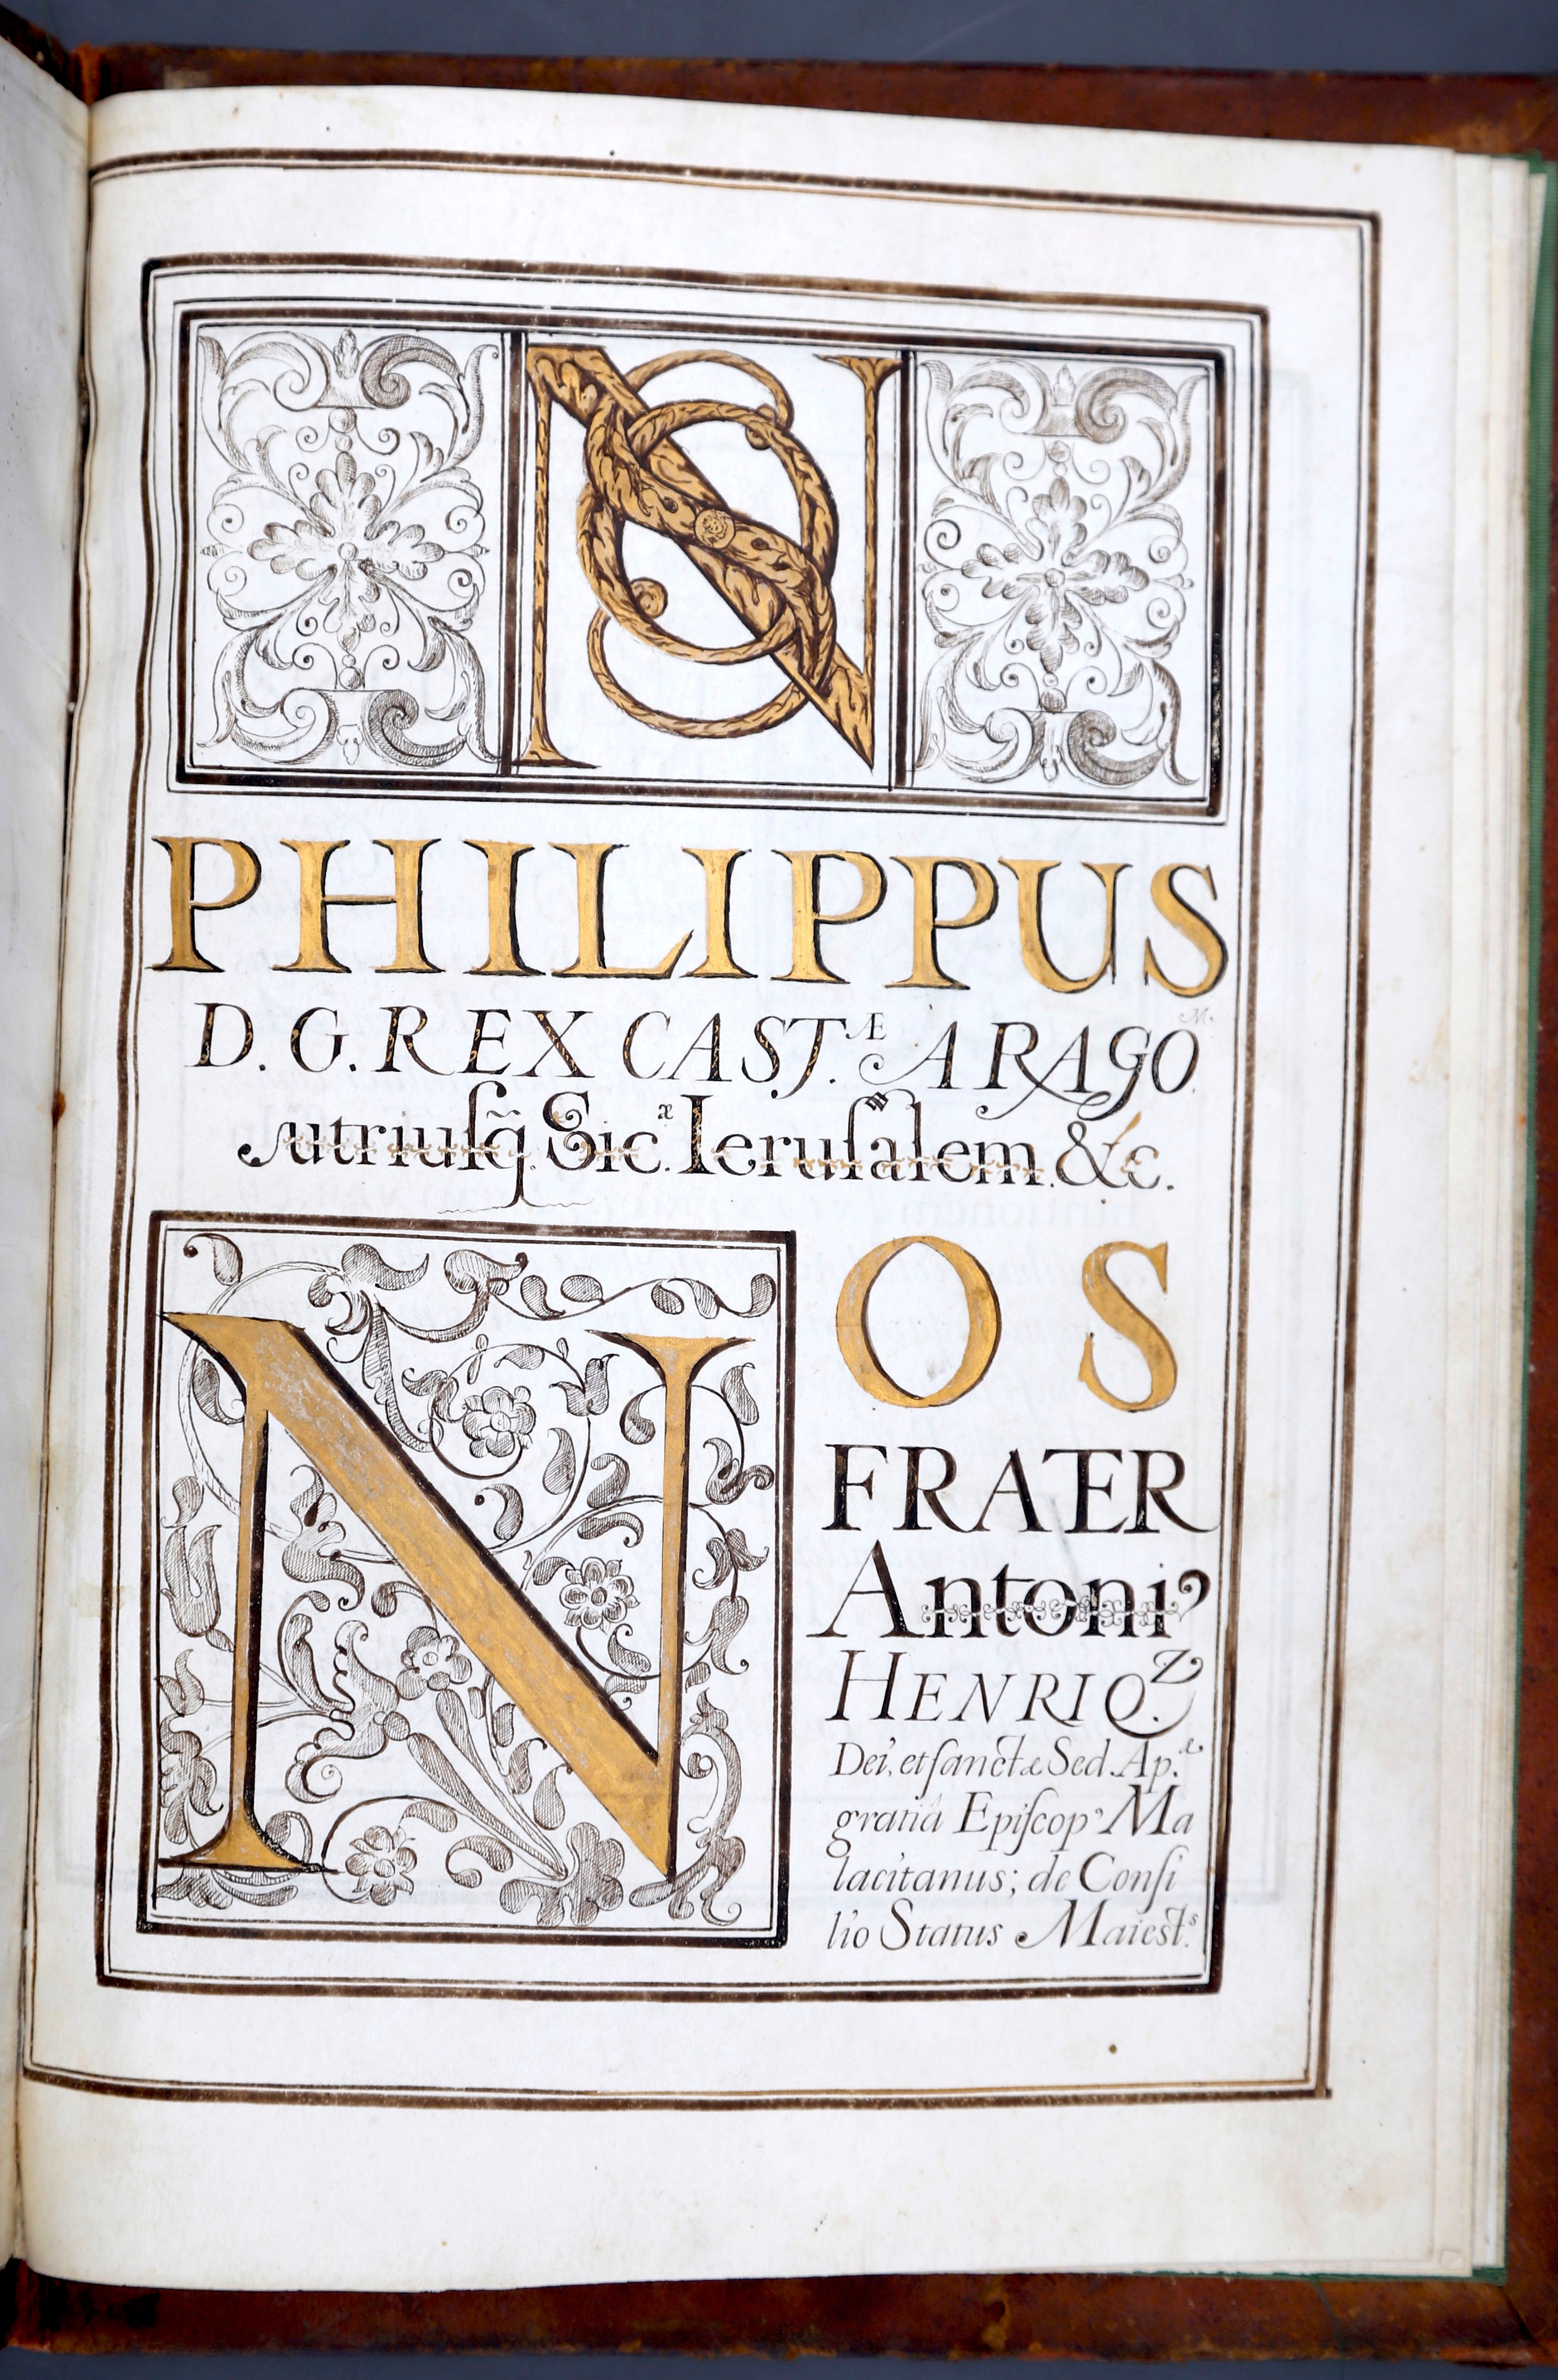 NOS
PHILIPPUS
D. G. REX CAST.Æ ARAGO.M.
utriuſq̃. Sic.æ Ieruſalem. &c.
NOS
FRATER
Antoni9
HENRIQ.Z
Dei, et ſanctæ Sed. Ap.æ
gratiâ Epiſcop9 Ma
lacitanus; de Conſi
lio Status Maiest.s